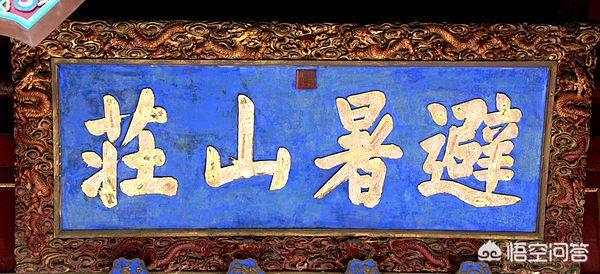 避暑山莊
悟空问答